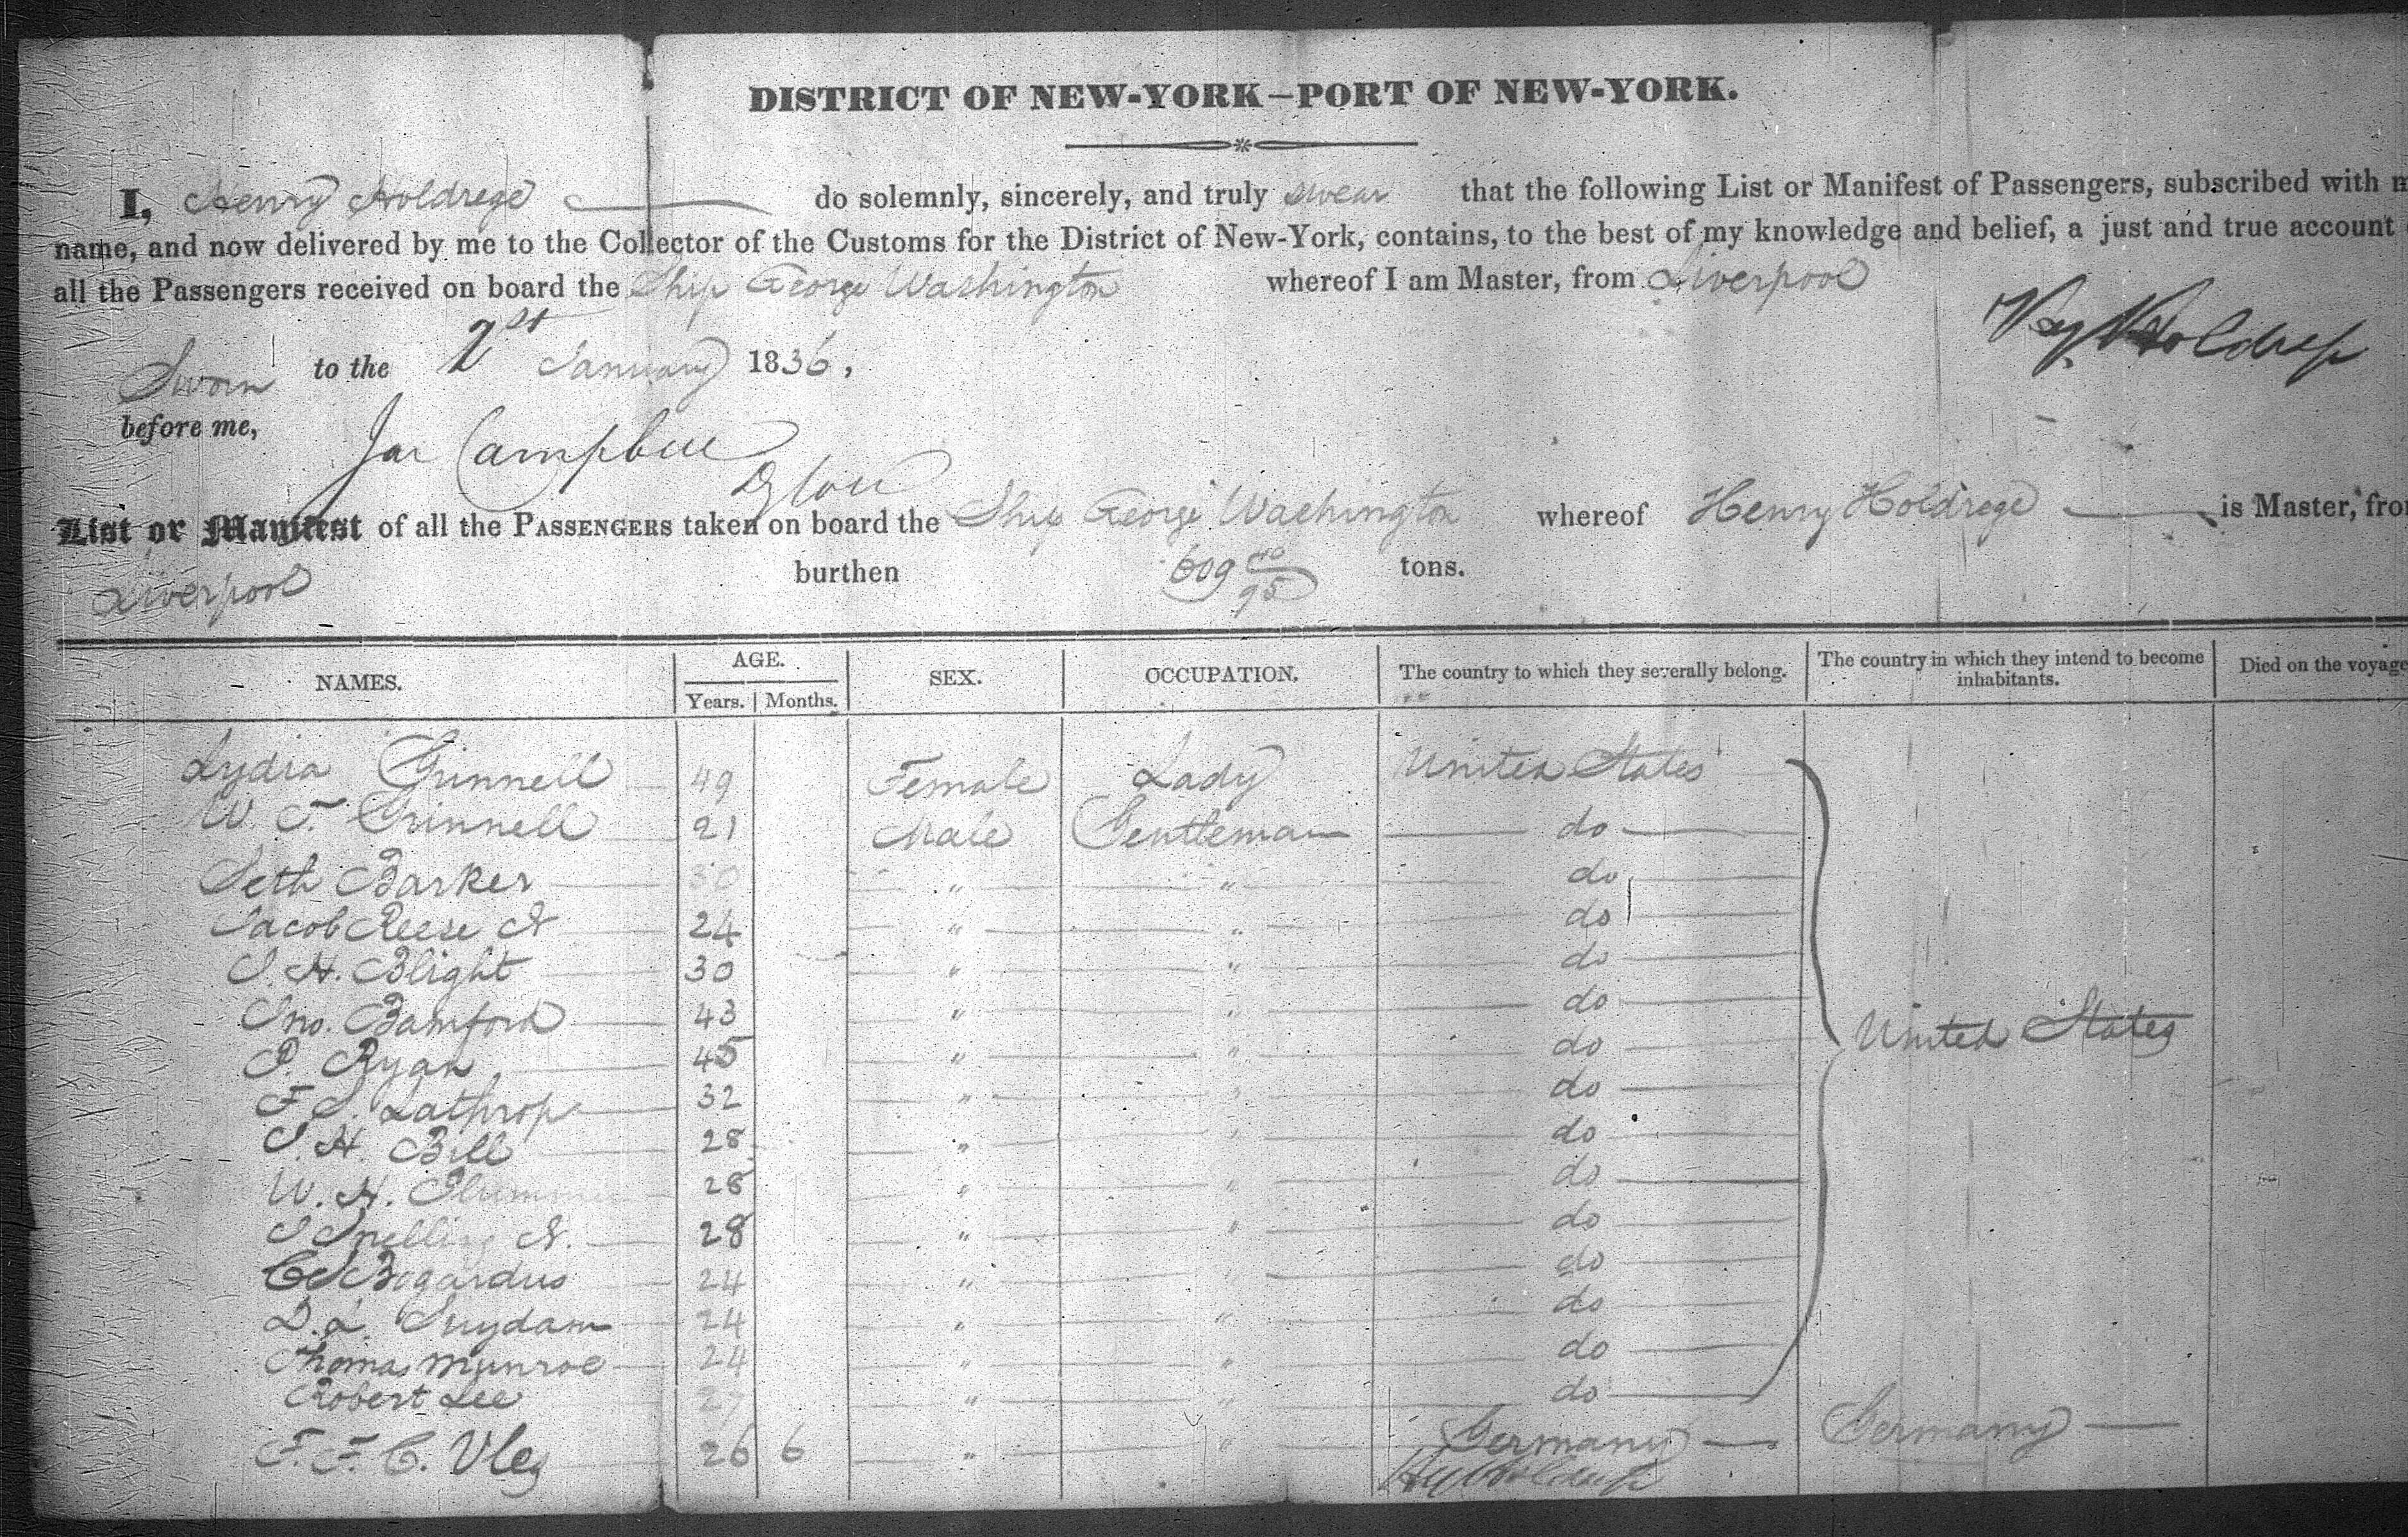 DISTRICT OF NEW-YORK—PORT OF NEW-YORK.
I, Henry Holdrege do solemnly, sincerely, and truly swear that the following List or Manifest of Passengers, subscribed with
name, and now delivered by me to the Collector of the Customs for the District of New-York, contains, to the best of my knowledge and belief, a just and true account
all the Passengers received on board the Ship George Washington whereof I am Master, from Liverpool
Sworn to the January 1836,
before me,
Campbell
List or Manifest of all the PASSENGERS taken on board the Ship George Washington whereof Henry Holdrege is Master, from
Liverpool burthen 609 40/95 tons.
NAMES. AGE. Years. Months. SEX. OCCUPATION. The country to which they severally belong. The country in which they intend to become inhabitants. Died on the voyage
Lydia Grinnell 49 Female Lady United States
W. T. Grinnell 21 Male Gentleman do
Seth Barker 30 " " do
Jacob Reese Jr 24 " " do
J. H. Blight 30 " " do
Jno. Bamford 43 " " do
P. Ryan 45 " " do United States
F. S. Lathrop 32 " " do
J. H. Bill 28 " " do
W. H. 28 " " do
J Snelling Jr. 28 " " do
Bogardus 24 " " do
D. L. Suydam 24 " " do
Thomas Munroe 24 " " do
Robert Lee 27 " " do
F. F. C. 26 6 " " Germany Germany